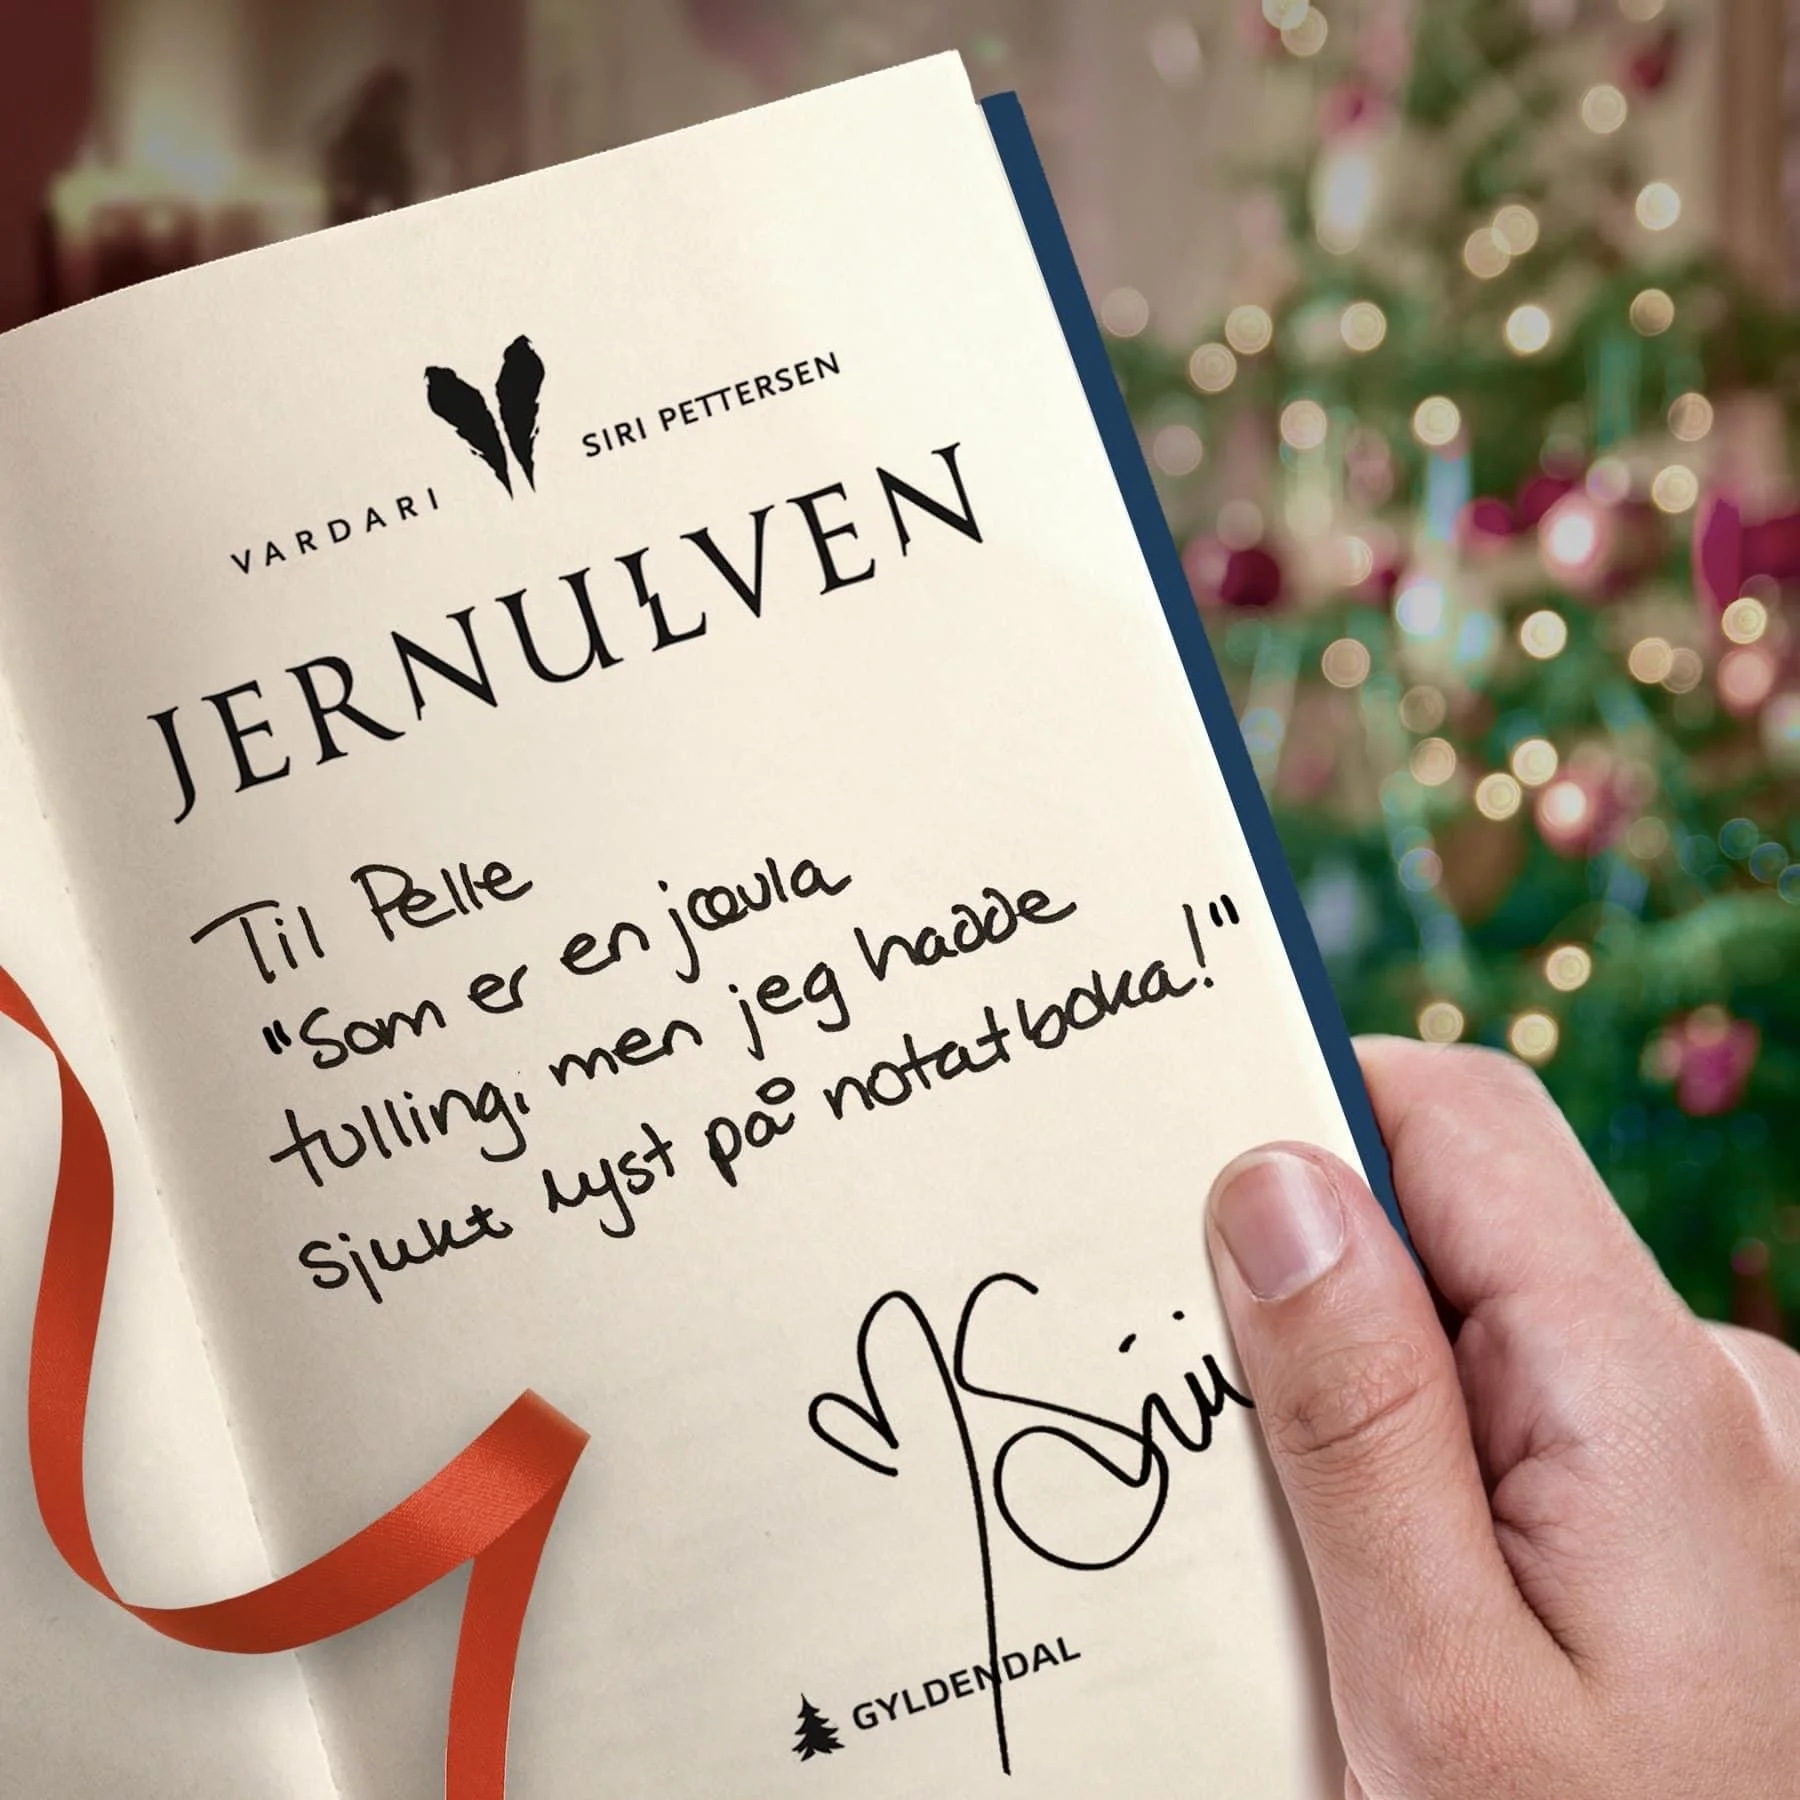 VARDARI SIRI PETTERSEN
JERNULVEN
Til Pelle
"Som er en jævla
tulling, men jeg hadde
sjukt lyst på notatboka!"
Siri
GYLDENDAL